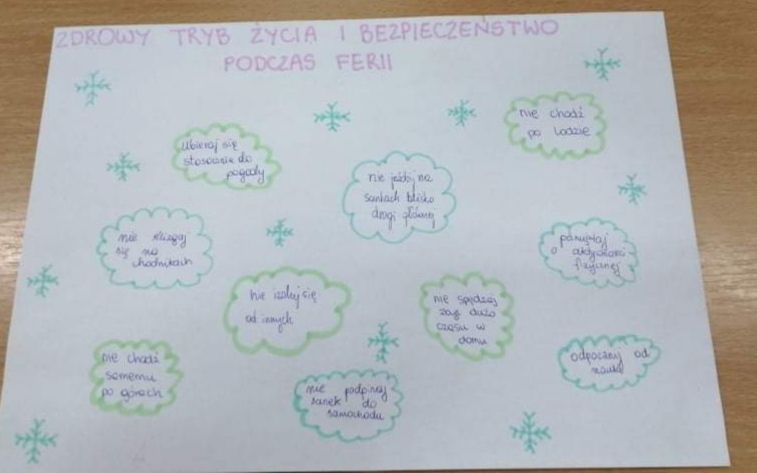 ZDROWY TRYB ŻYCIA I BEZPIECZEŃSTWO
PODCZAS FERII
nie chodź
po lodzie
ubieraj się
stosownie do
pogody
nie jeździj na
sankach blisko
drogi głównej
nie ślizgaj
się na
chodnikach
pamiętaj
o aktywności
fizycznej
nie izoluj się
od innych
nie spędzaj
zbyt dużo
czasu w
domu
nie chodź
samemu
po górach
nie podpinaj
sanek do
samochodu
odpocznij od
nauki